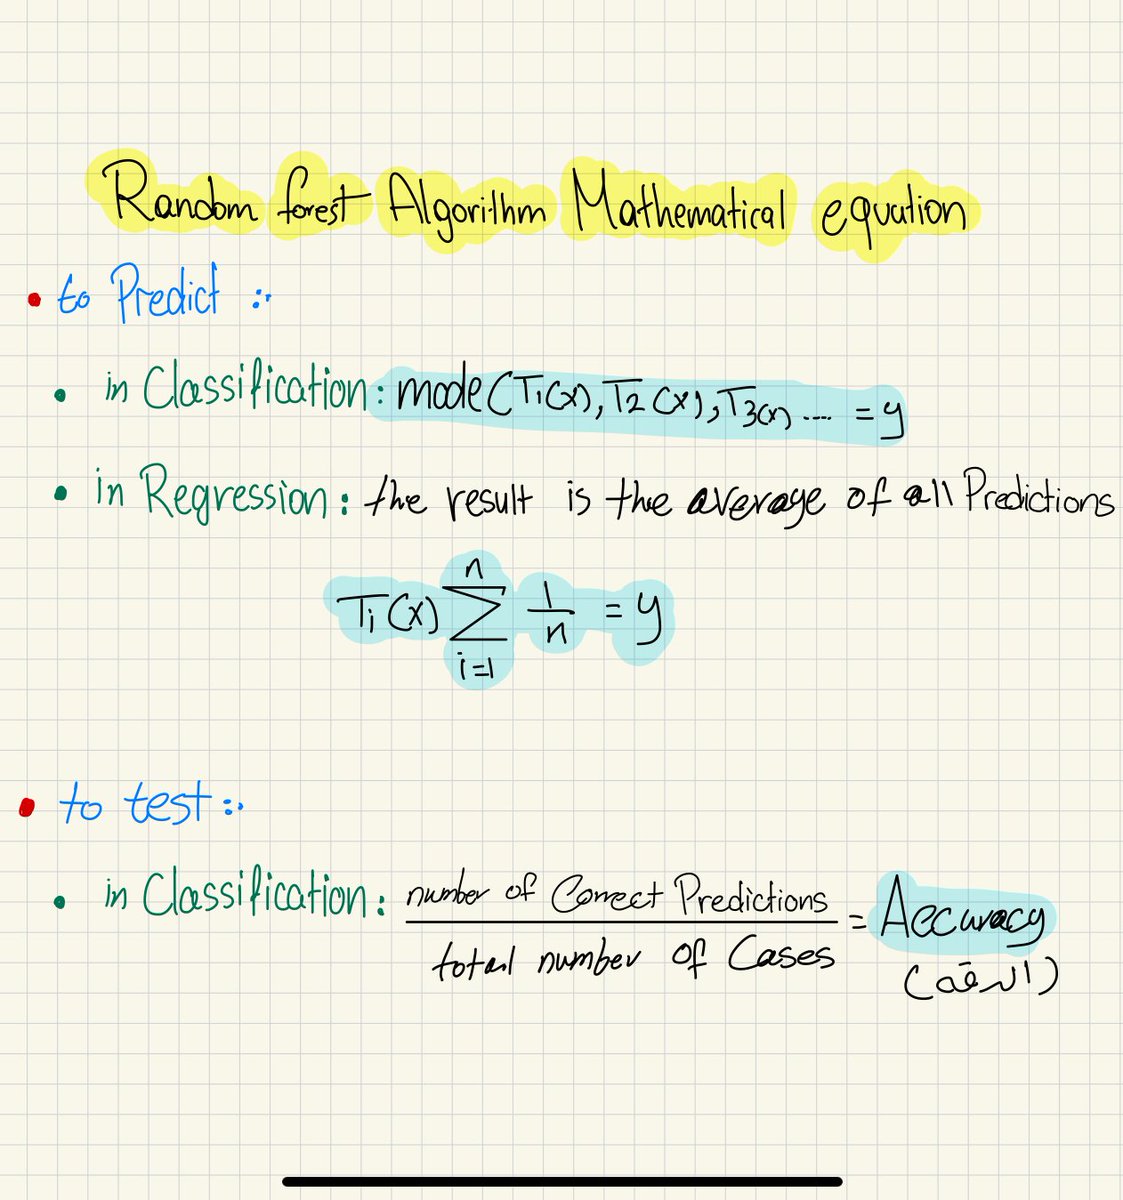 Random forest Algorithm Mathematical equation
• to Predict :
• in Classification: mode(T₁(x), T₂(x), T₃(x) .... = y
• in Regression: the result is the average of all Predictions
Tᵢ(x) ∑ᵢ₌₁ⁿ 1/n = y
• to test :
• in Classification: number of Correct Predictions / total number of Cases = Accuracy
(الدقة)